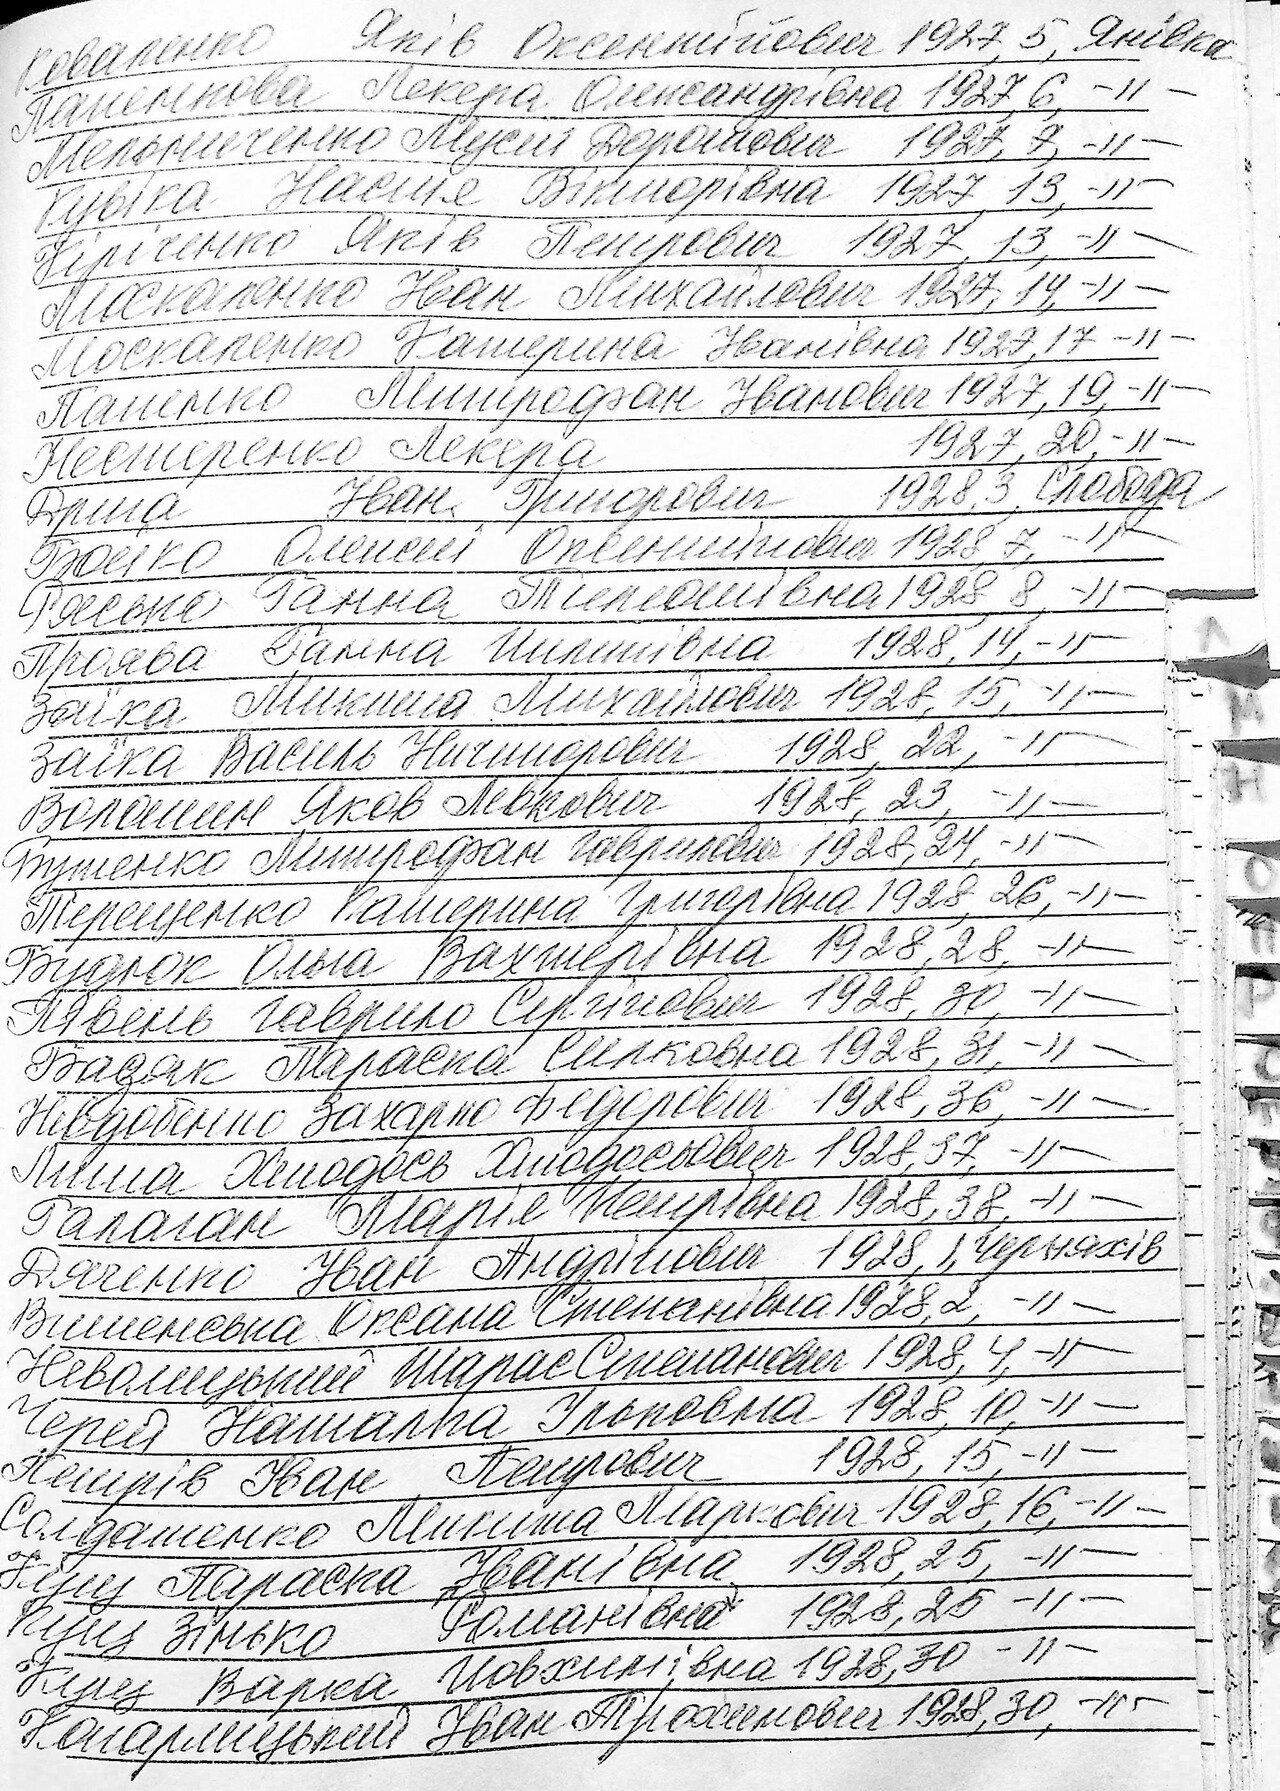 Коваленко Яків Оксентійович 1927, 5, Янівка
Пащенкова Лекера Олександрівна 1927, 6, -//-
Мельниченко Мусій Дорошович 1927, 7, -//-
Кувіка Настя Вікторівна 1927, 13, -//-
Кіріченко Яків Петрович 1927, 13, -//-
Москаленко Іван Михайлович 1927, 14, -//-
Москаленко Катерина Іванівна 1927, 17 -//-
Пащенко Митрофан Іванович 1927, 19, -//-
Нестеренко Лекера 1927, 20, -//-
Дрига Іван Григорович 1928, 3, Слобода
Бойко Олексій Оксентійович 1928, 7, -//-
Рясько Ганна 1928, 8, -//-
Проява Ганна Пилипівна 1928, 14, -//-
Заїка Микита Михайлович 1928, 15, -//-
Заїка Василь Ничипорович 1928, 22, -//-
Волошин Яков Левкович 1928, 23, -//-
Бутенко Митрофан Гаврилович 1928, 24, -//-
Терещенко Катерина Григорівна 1928, 26, -//-
Будюк Ольга Вахтерівна 1928, 28, -//-
Півень Гаврило Сергійович 1928, 30, -//-
Базяк Параска Силковна 1928, 31, -//-
Захарко Федорович 1928, 36, -//-
Липа Хтодось Хтодосьович 1928, 37, -//-
Галаган Марія Петрівна 1928, 38, -//-
Дяченко Іван Андрійович 1928, 1, Черняхів
Вишенська Оксана Степанівна 1928, 2, -//-
Неволицький Тарас Степанович 1928, 4, -//-
Черей Наталка Ільковна 1928, 10, -//-
Петрів Іван Петрович 1928, 15, -//-
Солдатенко Микита Маркович 1928, 16, -//-
Куц Параска Іванівна 1928, 25, -//-
Куц Зінько Романівна 1928, 25 -//-
Куц Варка Йовхимівна 1928, 30 -//-
Кагарлицький Іван Трохимович 1928, 30, -//-
Л
М
Н
О
П
Р